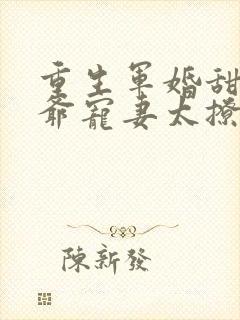 重生軍婚甜
爺寵妻太撩
陳新發